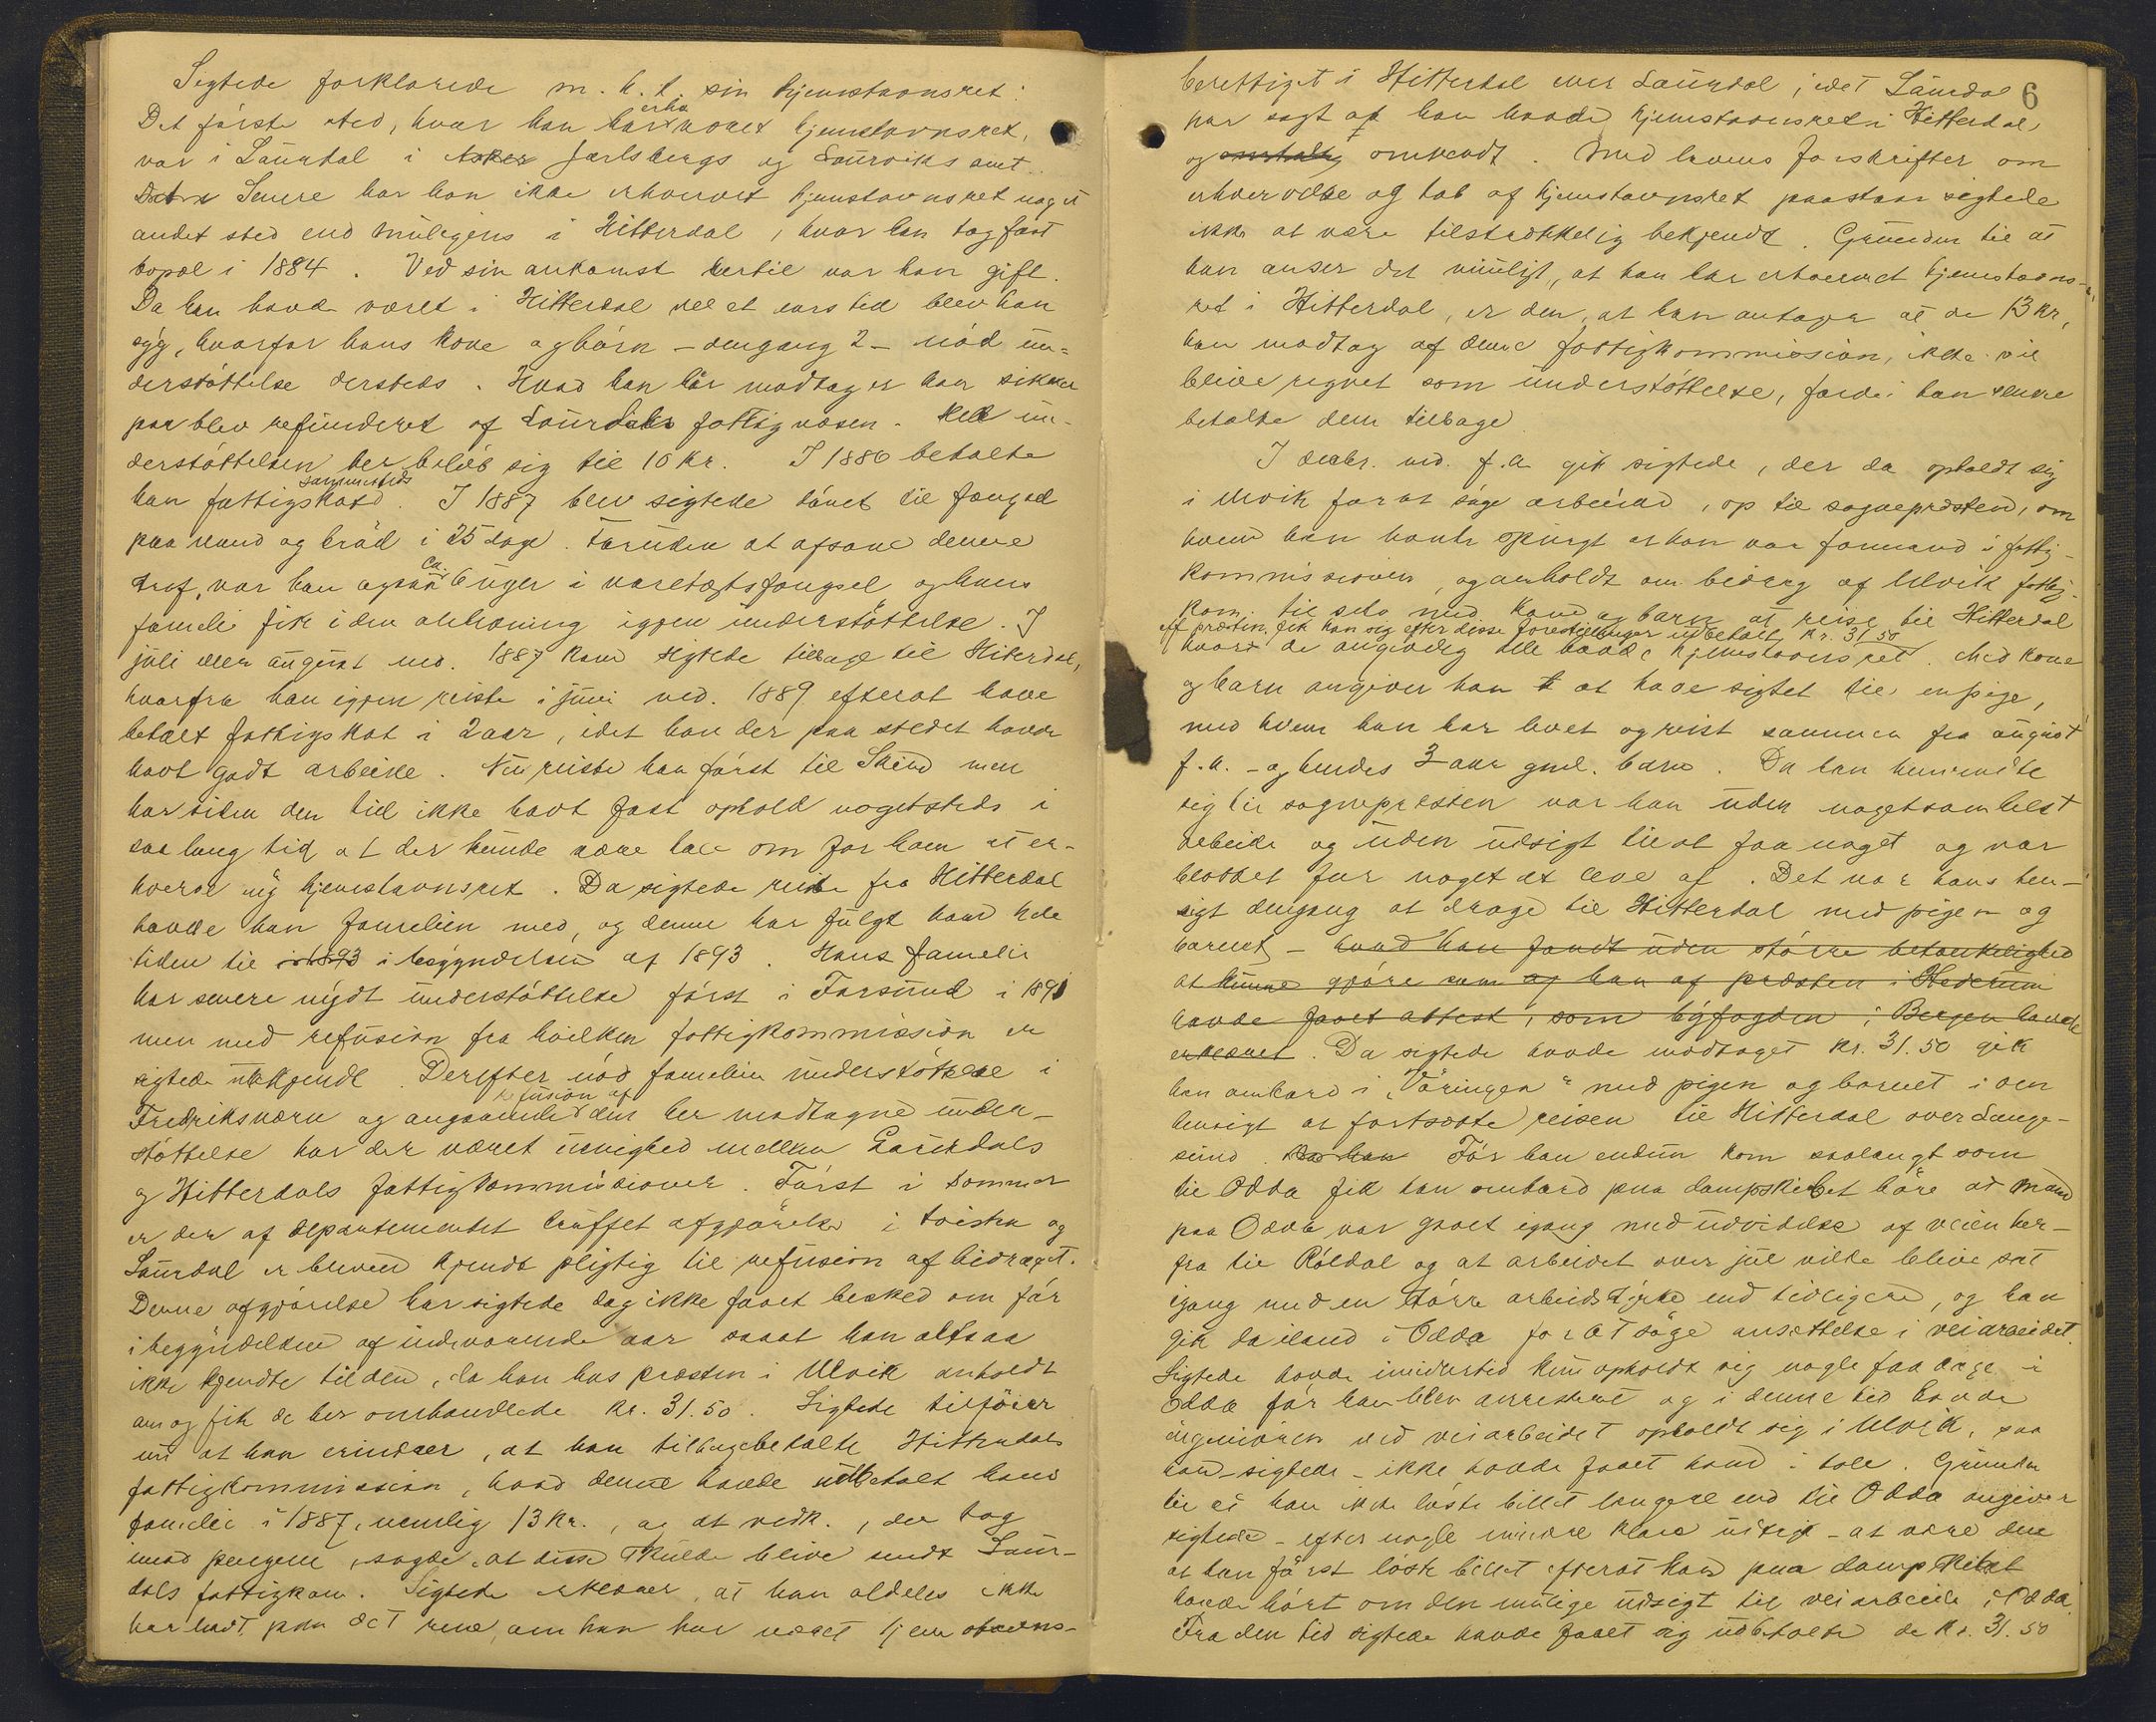 Sigtede forklarede m. h. t. sin hjemstavnsret:
Det første sted, hvor han har erhvervet hjemstavnsret,
var i Laurdal i Asker Jarlsbergs og Laurviks amt.
Senere har han ikke erhvervet hjemstavnsret noget
andet sted end muligens i Hitterdal, hvor han tog fast
bopæl i 1884. Ved sin ankomst hertil var han gift.
Da han havde været i Hitterdal vel et aars tid blev han
syg, hvorfor hans kone og børn – dengang 2 – nød un-
derstøttelse dersteds. Hvad han her modtog er han sikker
paa blev refunderet af Laurdals fattigvæsen. Hele un-
derstøttelsen her beløb sig til 10 kr. I 1886 betalte
han sammesteds fattigskat. I 1887 blev sigtede dømt til fængsel
paa vand og brød i 25 dage. Foruden at afsone denne
straf, var han ogsaa ca. 6 uger i varetægtsfængsel og hans
familie fik i den anledning igjen understøttelse. I
juli eller august md. 1887 kom sigtede tilbage til Hiterdal,
hvorfra han igjen reiste i juni md. 1889 efterat have
betalt fattigskat i 2 aar, idet han der paa stedet havde
havt godt arbeide. Nu reiste han først til Skien men
har siden den tid ikke havt fast ophold nogetsteds i
saa lang tid, at der kunde være tale om for ham at er-
hverve ny hjemstavnsret. Da sigtede reiste fra Hitterdal
havde han familien med, og denne har fulgt ham hele
tiden til i 1893 i begyndelsen af 1893. Hans familie
har senere nydt understøttelse først i Farsund i 1891
men med refusion fra hvilken fattigkommission er
sigtede ubekjendt. Derefter nød familien understøttelse i
Fredriksværn og angaaende refusion af den her modtagne under-
støttelse har der været uenighed mellem Laurdals
og Hitterdals fattigkommissioner. Først i sommer
er der af departementet truffet afgjørelse i tvisten og
Laurdal er bleven kjendt pligtig til refusion af bidraget.
Denne afgjørelse har sigtede dog ikke faaet besked om før
i begyndelsen af indeværende aar saaat han altsaa
ikke kjendte til den, da han hos presten i Ulvik anholdt
om og fik de her omhandlede kr. 31.50. Sigtede tilføier
nu at han erindrer, at han tilbagebetalte Hitterdals
fattigkommission, hvad denne havde udbetalt hans
familie i 1887, nemlig 13 kr., og at vedk., der tog
imod pengene, sagde, at disse skulde blive sendt Laur-
dals fattigkom. Sigtede erklærer, at han aldeles ikke
har havt paa det rene, om han har været hjemstavns-
6
berettiget i Hitterdal eller Laurdal, idet Laurdal
har sagt at han havde hjemstavnsret i Hitterdal,
og omvendt. Med lovens forskrifter om
erhvervelse og tab af hjemstavnsret paastaar sigtede
ikke at være tilstrækkelig bekjendt. Grunden til at
han anser det muligt, at han har erhvervet hjemstavns-
ret i Hitterdal, er den, at han antager at de 13 kr,
han modtog af denne fattigkommission, ikke vil
blive regnet som understøttelse, fordi han senere
betalte dem tilbage.
I decbr. md. f. a. gik sigtede, der da opholdt sig
i Ulvik for at søge arbeide, op til sognepresten, om
hvem han havde spurgt at han var formand i fattig-
kommissionen, og anholdt om bidrag af Ulvik fattig-
kom. til selv med kone og barn at reise til Hitterdal
Af presten fik han sig efter disse forestillinger udbetalt kr. 31.50
hvor de angivelig alle havde hjemstavnsret. Med kone
og barn angiver han at have sigtet til en pige,
med hvem han har levet og reist sammen fra august
f. a. – og hendes 3 aar gml. barn. Da han henvendte
sig til sognepresten var han uden nogetsomhelst
arbeide og uden udsigt til at faa noget og var
blottet for noget at leve af. Det var hans hen-
sigt dengang at drage til Hitterdal med pigen og
barnet – hvad han fandt uden større betænkelighed
at kunne gjøre som og han af presten i Hedrum
havde faaet attest, som byfogden i Bergen havde
erklæret. Da sigtede havde modtaget kr. 31.50 gik
han ombord i „Vøringen“ med pigen og barnet i den
hensigt at fortsætte reisen til Hitterdal over Lange-
sund. Da han Før han endnu kom saalangt som
til Odda fik han ombord paa dampskibet høre at man
paa Odda var gaaet igang med udvidelse af veien her-
fra til Røldal og at arbeidet over jul vilde blive sat
igang med en større arbeidsstyrke end tidligere, og han
gik da iland i Odda for at søge ansættelse i veiarbeidet.
Sigtede havde imidlertid kun opholdt sig nogle faa dage i
Odda før han blev arresteret og i denne tid havde
ingeniøren ved veiarbeidet opholdt sig i Ulvik, saa
han – sigtede – ikke havde faaet ham i tale. Grunden
til at han ikke løste billet længere end til Odda angiver
sigtede – efter nogle mindre klare udsagn – at være den
at han først løste billet efterat han paa dampskibet
havde hørt om den mulige udsigt til veiarbeide i Odda.
Fra den tid sigtede havde faaet sig udbetalt de kr. 31.50